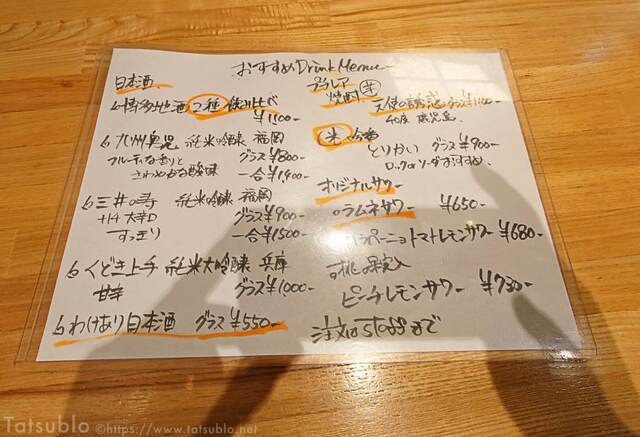 おすすめDrinkMenu
日本酒
博多地酒 2種 飲み比べ
¥1100-
九州 純米吟醸 福岡
フルーティな香りと グラス¥800-
さわやかな酸味 一合¥1,400-
三井の寿 純米吟醸 福岡
+14 大辛口 グラス¥900-
すっきり 一合¥1500-
くどき上手 純米大吟醸 兵庫
甘辛 グラス¥1000-
わけあり日本酒 グラス ¥550-
プレミア
焼酎 芋
天使の誘惑 グラス¥1100-
40度 鹿児島
米 吟香
とりかい グラス¥900-
ロックorソーダおすすめ
オリジナルサワー
ラムネサワー ¥650-
ハラペーニョトマトレモンサワー ¥680-
桃の果実入
ピーチレモンサワー ¥730-
注文はStaffまで
Tatsublo ©https://www.tatsublo.net